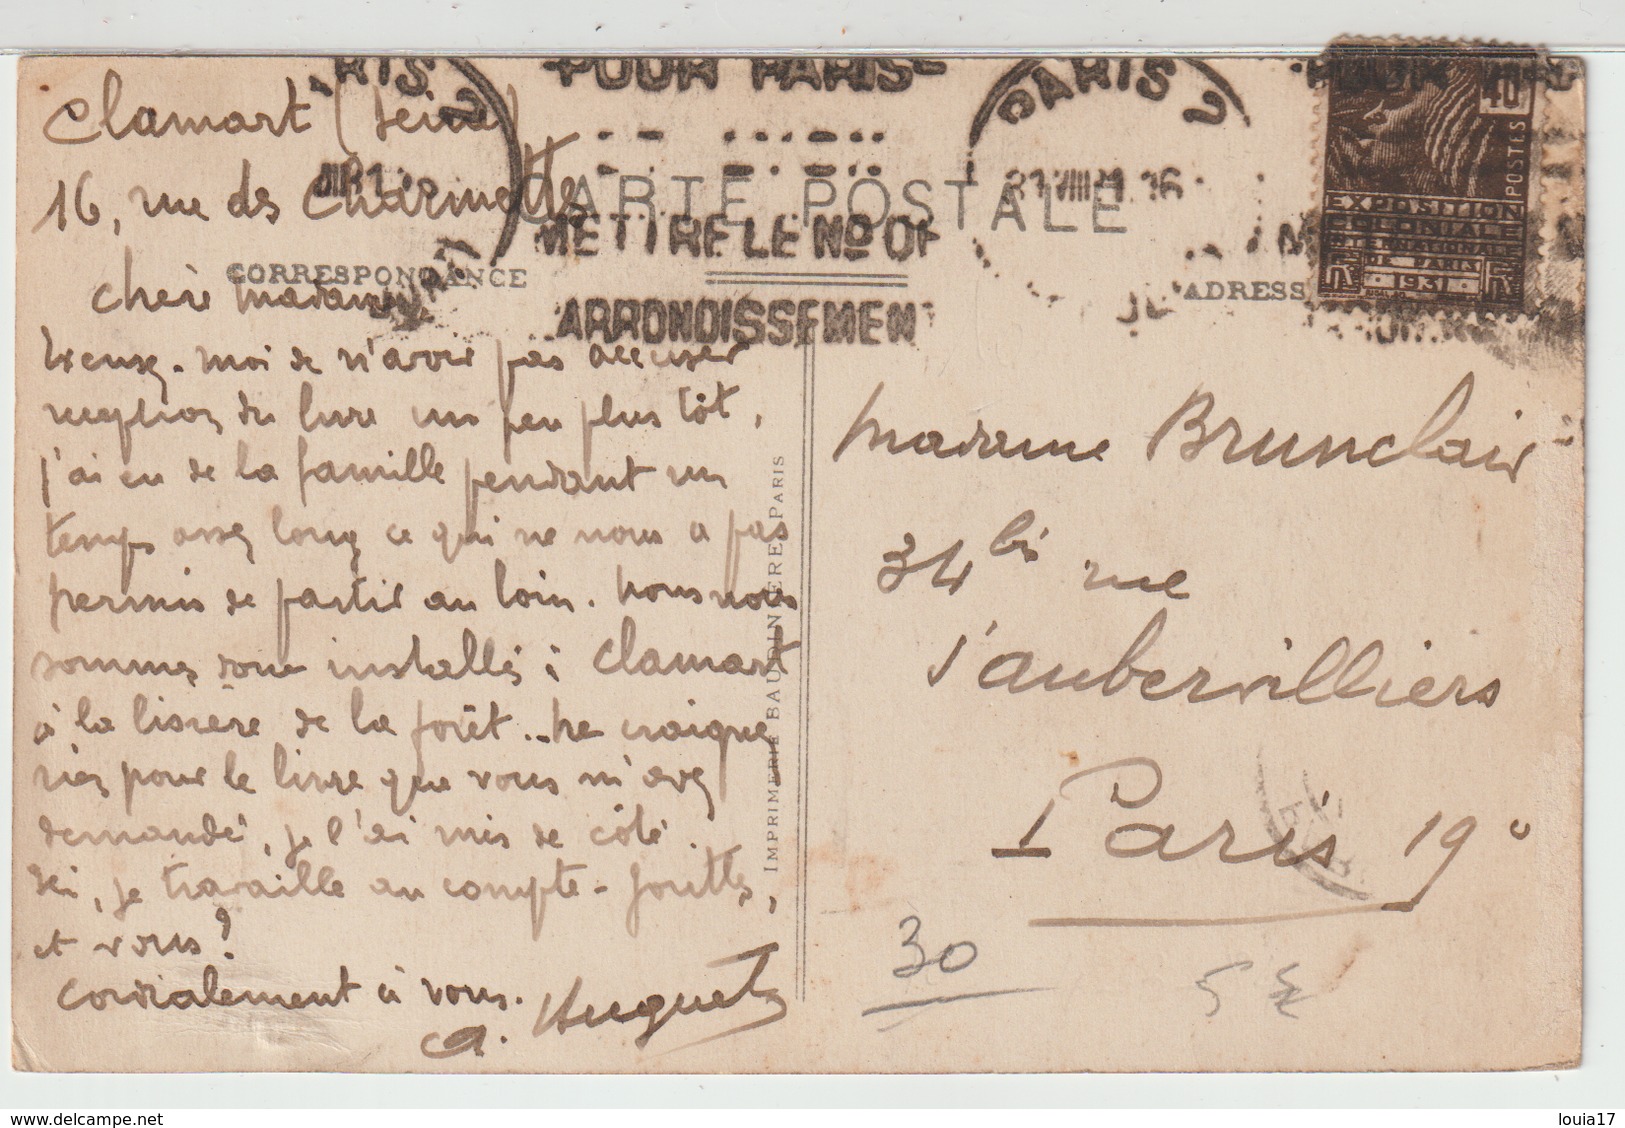 Clamart (Seine)
16, rue des Charmettes
Chère Madame
Excusez-moi de n'avoir pas accuser
reception du livre un peu plus tôt,
j'ai eu de la famille pendant un
temps assez long ce qui ne nous a pas
permis de partir au loin. Nous nous
sommes donc installés à Clamart
à la lisière de la forêt.. Ne craignez
rien pour le livre que vous m'avez
demandé, je l'ai mis de côté.
Ici, je travaille au compte-gouttes,
et vous?
Cordialement à vous.
A. Huguet
CARTE POSTALE
CORRESPONDANCE
ADRESSE
POUR PARIS
METTRE LE No OF
ARRONDISSEMEN
PARIS
40
POSTES
EXPOSITION
COLONIALE
INTERNATIONALE
DE PARIS
1931
IMPRIMERIE BAUDINIÈRE PARIS
Madame Brunclair
34 bis rue
d'aubervilliers
Paris 19e
30
5
delcampe.net
louia17